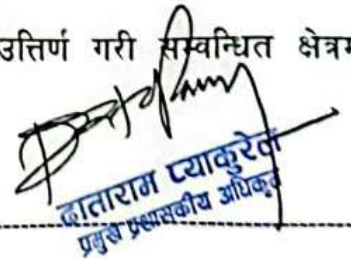 उत्तिर्ण गरी सम्वन्धित क्षेत्रम
दाताराम प्याकुरेल
प्रमुख प्रशासकीय अधिकृत